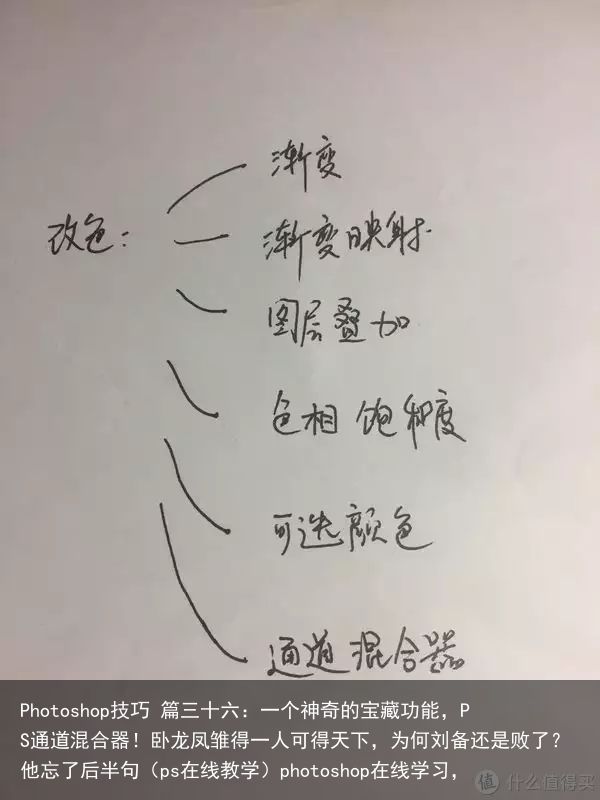 渐变
改色：
渐变映射
图层叠加
色相 饱和度
可选颜色
通道混合器
Photoshop技巧 篇三十六：一个神奇的宝藏功能，P
S通道混合器！卧龙凤雏得一人可得天下，为何刘备还是败了？
他忘了后半句（ps在线教学）photoshop在线学习，
值 什么值得买